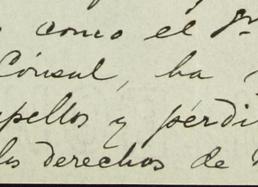 como el Sr
Cónsul, ha
pellos y pérdi
los derechos de